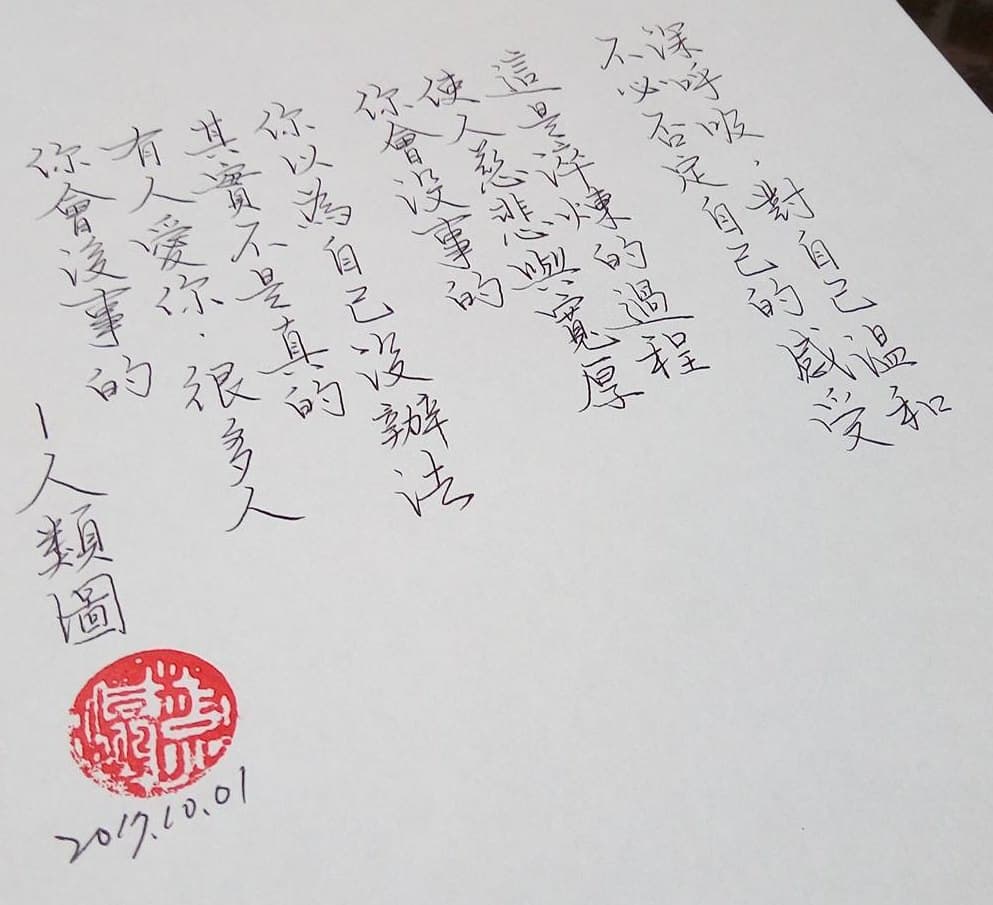 深呼吸，對自己溫和
不必否定自己的感受
這是淬煉的過程
使人慈悲與寬厚
你會沒事的
你以為自己沒辦法
其實不是真的
有人愛你，很多人
你會沒事的
－人類圖
2017.10.01